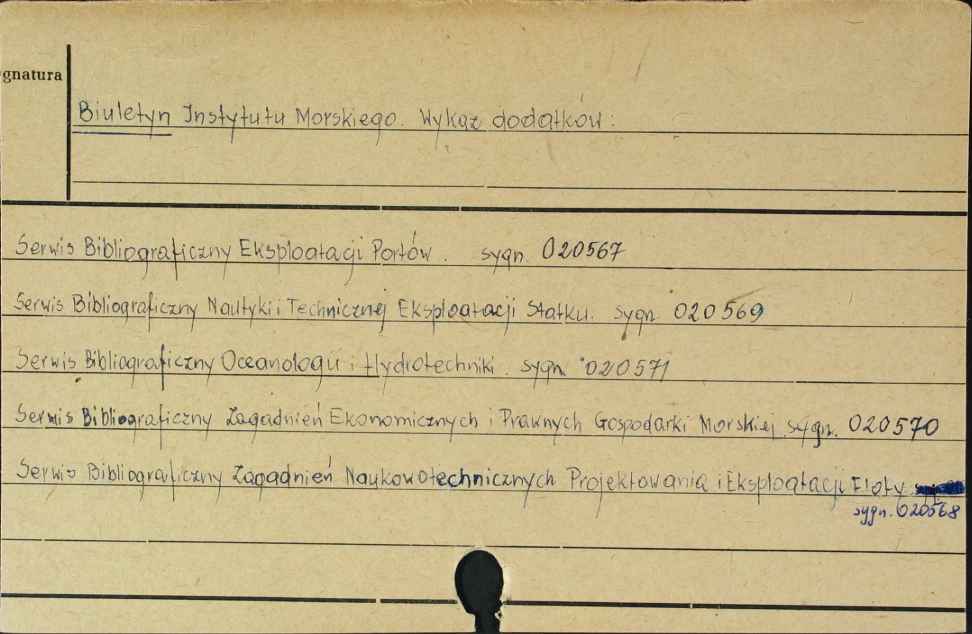 gnatura
Biuletyn Instytutu Morskiego. Wykaz dodatków:
Serwis Bibliograficzny Eksploatacji Portów. sygn. 020567
Serwis Bibliograficzny Nautyki i Technicznej Eksploatacji Statku. sygn. 020569
Serwis Bibliograficzny Oceanologii i Hydrotechniki. sygn. 020571
Serwis Bibliograficzny Zagadnień Ekonomicznych i Prawnych Gospodarki Morskiej. sygn. 020570
Serwis Bibliograficzny Zagadnień Naukowotechnicznych Projektowania i Eksploatacji Floty
sygn. 020568